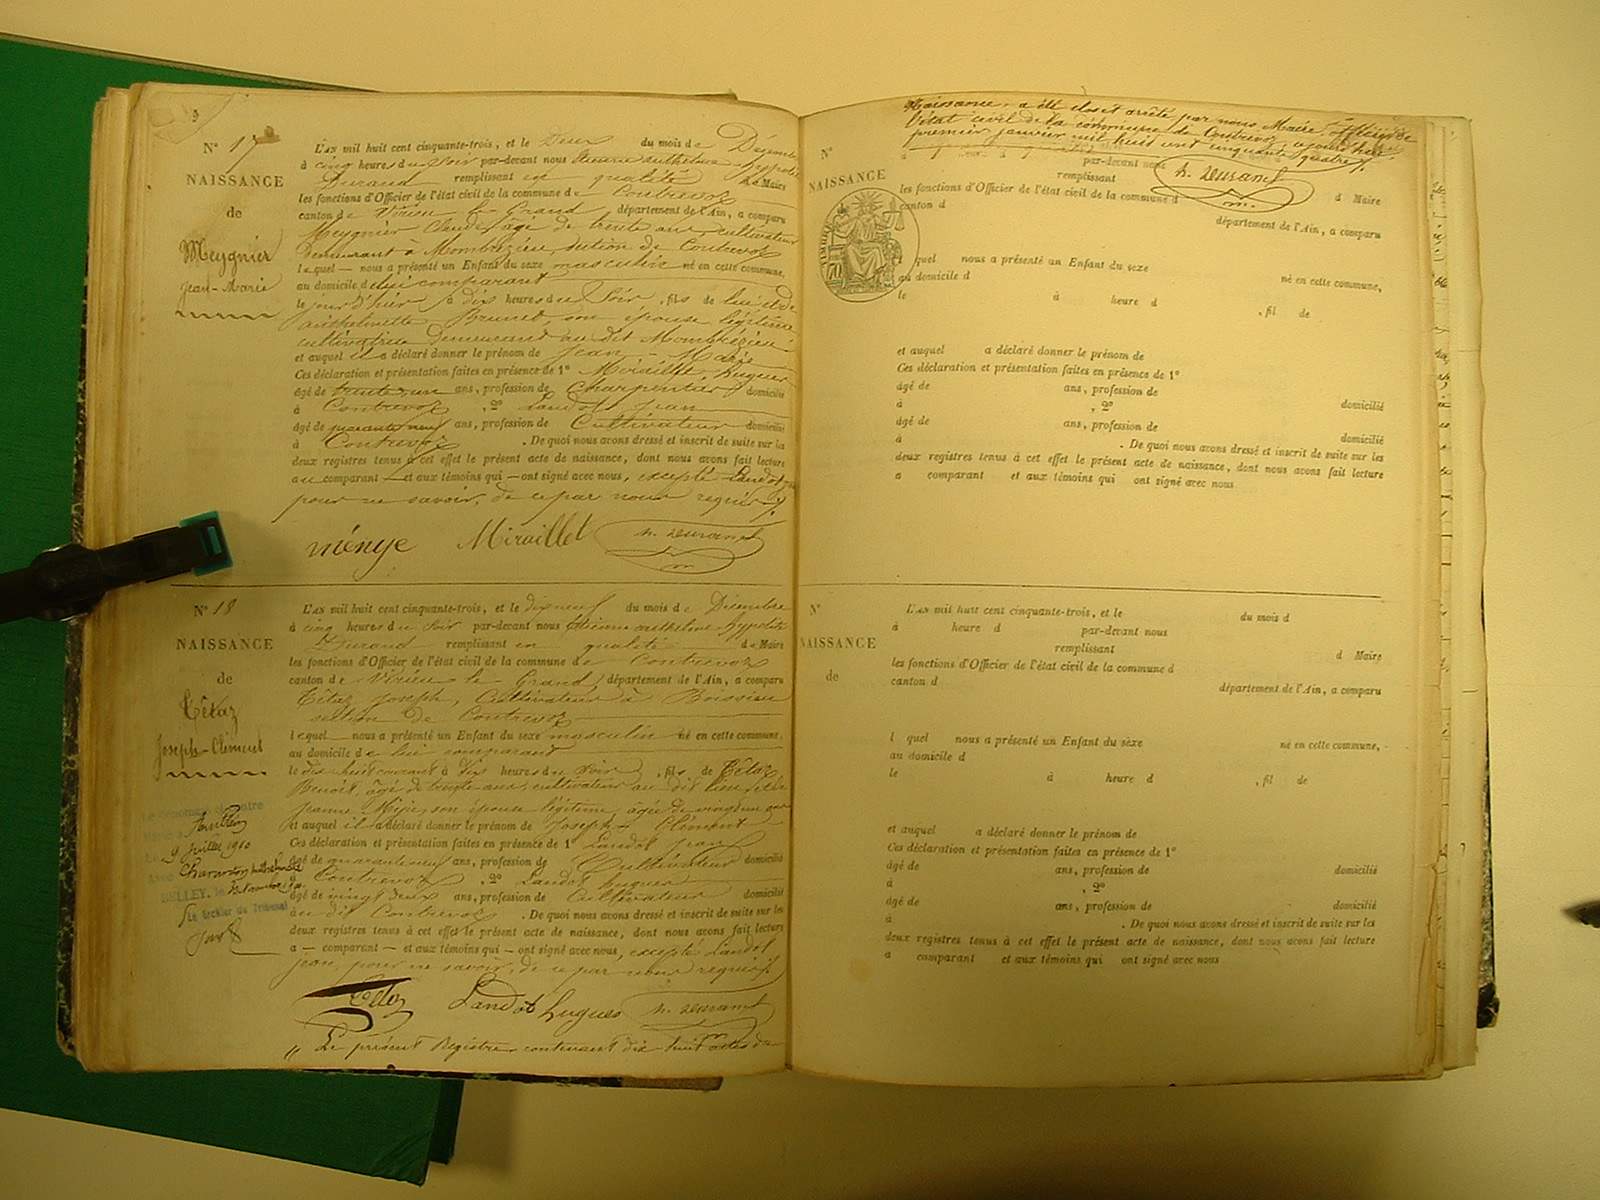 9
N° 17
NAISSANCE
de
Meygnier
Jean-Marie
L'AN mil huit cent cinquante-trois, et le Deux du mois de Décembre
à cinq heures du soir par-devant nous Etienne anthelme hyppolite
Durand remplissant en qualité de Maire
les fonctions d'Officier de l'état civil de la commune de Contrevoz
canton de Virieu le Grand département de l'Ain, a comparu
Meygnier Claude âgé de trente ans, cultivateur
Demeurant à Mombrézieu, section de Contrevoz
lequel — nous a présenté un Enfant du sexe masculin né en cette commune,
au domicile de lui comparant
le jour d'hier à dix heures du Soir, fils de lui et de
anthelmette Brunet, son épouse légitime
cultivatrice Demeurant au dit Mombrézieu
et auquel il a déclaré donner le prénom de Jean-Marie
Ces déclaration et présentation faites en présence de 1° Miraillet hugues
âgé de trente-un ans, profession de Charpentier domicilié
à Contrevoz, 2° Landot Jean
âgé de quarante neuf ans, profession de Cultivateur domicilié
à Contrevoz. De quoi nous avons dressé et inscrit de suite sur les
deux registres tenus à cet effet le présent acte de naissance, dont nous avons fait lecture
au comparant — et aux témoins qui — ont signé avec nous, excepté Landot
pour ne savoir, de ce par nous requis
ményé Miraillet h. Durand
N° 18
NAISSANCE
de
Tétaz
Joseph-Clément
L'AN mil huit cent cinquante-trois, et le dix neuf du mois de Décembre
à cinq heures du Soir par-devant nous Etienne anthelme hyppolite
Durand remplissant en qualité de Maire
les fonctions d'Officier de l'état civil de la commune de Contrevoz
canton de Virieu le Grand département de l'Ain, a comparu
Tétaz Joseph, Cultivateur à Boissieu
section de Contrevoz
lequel nous a présenté un Enfant du sexe masculin né en cette commune,
au domicile de lui comparant
le dix huit courant à Dix heures du Soir, fils de Tétaz
Benoit, âgé de trente ans, cultivateur au dit lieu, et de
jeanne son épouse légitime, âgée de vingt un ans
et auquel il a déclaré donner le prénom de Joseph Clément
Ces déclaration et présentation faites en présence de 1° Landot jean
âgé de quarante neuf ans, profession de Cultivateur domicilié
à Contrevoz, 2° Landot hugues
âgé de vingt deux ans, profession de Cultivateur domicilié
au dit Contrevoz. De quoi nous avons dressé et inscrit de suite sur les
deux registres tenus à cet effet le présent acte de naissance, dont nous avons fait lecture
a — comparant — et aux témoins qui — ont signé avec nous, excepté Landot
jean, pour ne savoir, de ce par nous requis
Tétaz Landot hugues h. Durand
Le présent Registre contenant dix-huit actes de
9 Juillet 1910
BELLEY, le
Le Greffier du Tribunal
Naissance, a été clos et arrêté par nous Maire, Officier de
l'état civil de la commune de Contrevoz, ajourd'hui
premier janvier mil huit cent cinquante quatre
h. Durand
N°
NAISSANCE
par-devant nous
remplissant d Maire
les fonctions d'Officier de l'état civil de la commune d
canton d
département de l'Ain, a comparu
quel nous a présenté un Enfant du sexe né en cette commune,
au domicile d
le à heure d, fil de
et auquel a déclaré donner le prénom de
Ces déclaration et présentation faites en présence de 1°
âgé de ans, profession de
à, 2° domicilié
âgé de ans, profession de
à domicilié
. De quoi nous avons dressé et inscrit de suite sur les
deux registres tenus à cet effet le présent acte de naissance, dont nous avons fait lecture
a comparant et aux témoins qui ont signé avec nous
N°
NAISSANCE
de
L'AN mil huit cent cinquante-trois, et le du mois d
à heure d par-devant nous
remplissant d Maire
les fonctions d'Officier de l'état civil de la commune d
canton d département de l'Ain, a comparu
l quel nous a présenté un Enfant du sexe né en cette commune,
au domicile d
le à heure d, fil de
et auquel a déclaré donner le prénom de
Ces déclaration et présentation faites en présence de 1°
âgé de ans, profession de domicilié
à, 2°
âgé de ans, profession de domicilié
à. De quoi nous avons dressé et inscrit de suite sur les
deux registres tenus à cet effet le présent acte de naissance, dont nous avons fait lecture
a comparant et aux témoins qui ont signé avec nous